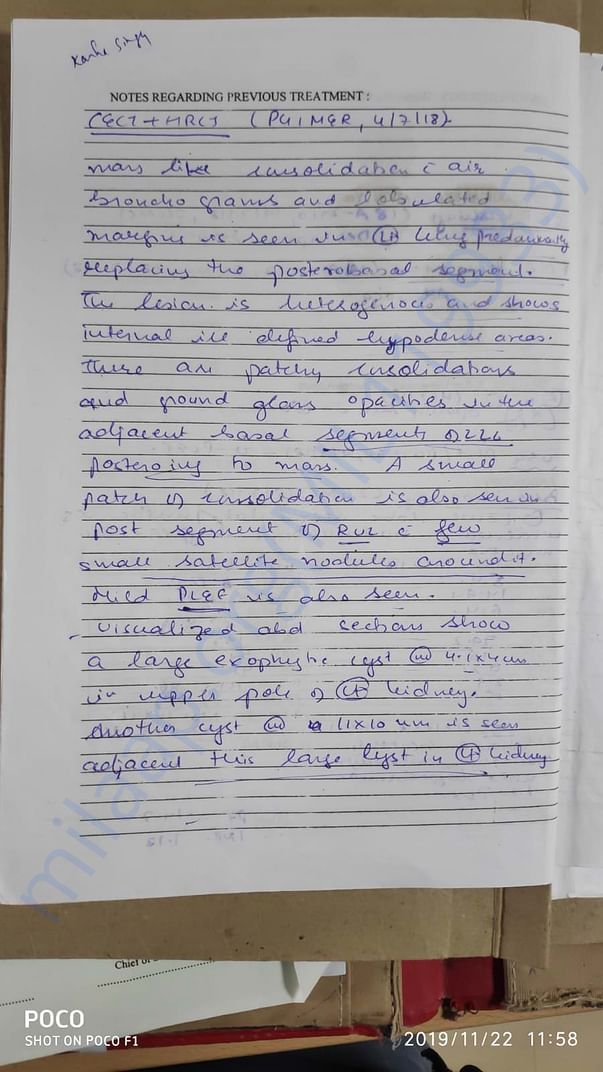 NOTES REGARDING PREVIOUS TREATMENT :
CECT + HRCT (PGIMER, 4/7/18)
mass like consolidation c̄ air
bronchograms and lobulated
margins is seen in (Lt) lung predominantly
replacing the posterobasal segment.
The lesion is heterogenous and shows
internal ill defined hypodense areas.
There are patchy consolidations
and ground glass opacities in the
adjacent basal segments of LLL
posteroinf to mass. A small
patch of consolidation is also seen in
post segment of RUL c̄ few
small satellite nodules around it.
Mild PLEF is also seen.
- visualized abd sections show
a large exophytic cyst 4.1x4cm
in upper pole of (Lt) kidney.
Another cyst 11x10 mm is seen
adjacent this large cyst in (Lt) kidney
milaap.org
Chief of
POCO
SHOT ON POCO F1
2019/11/22 11:58